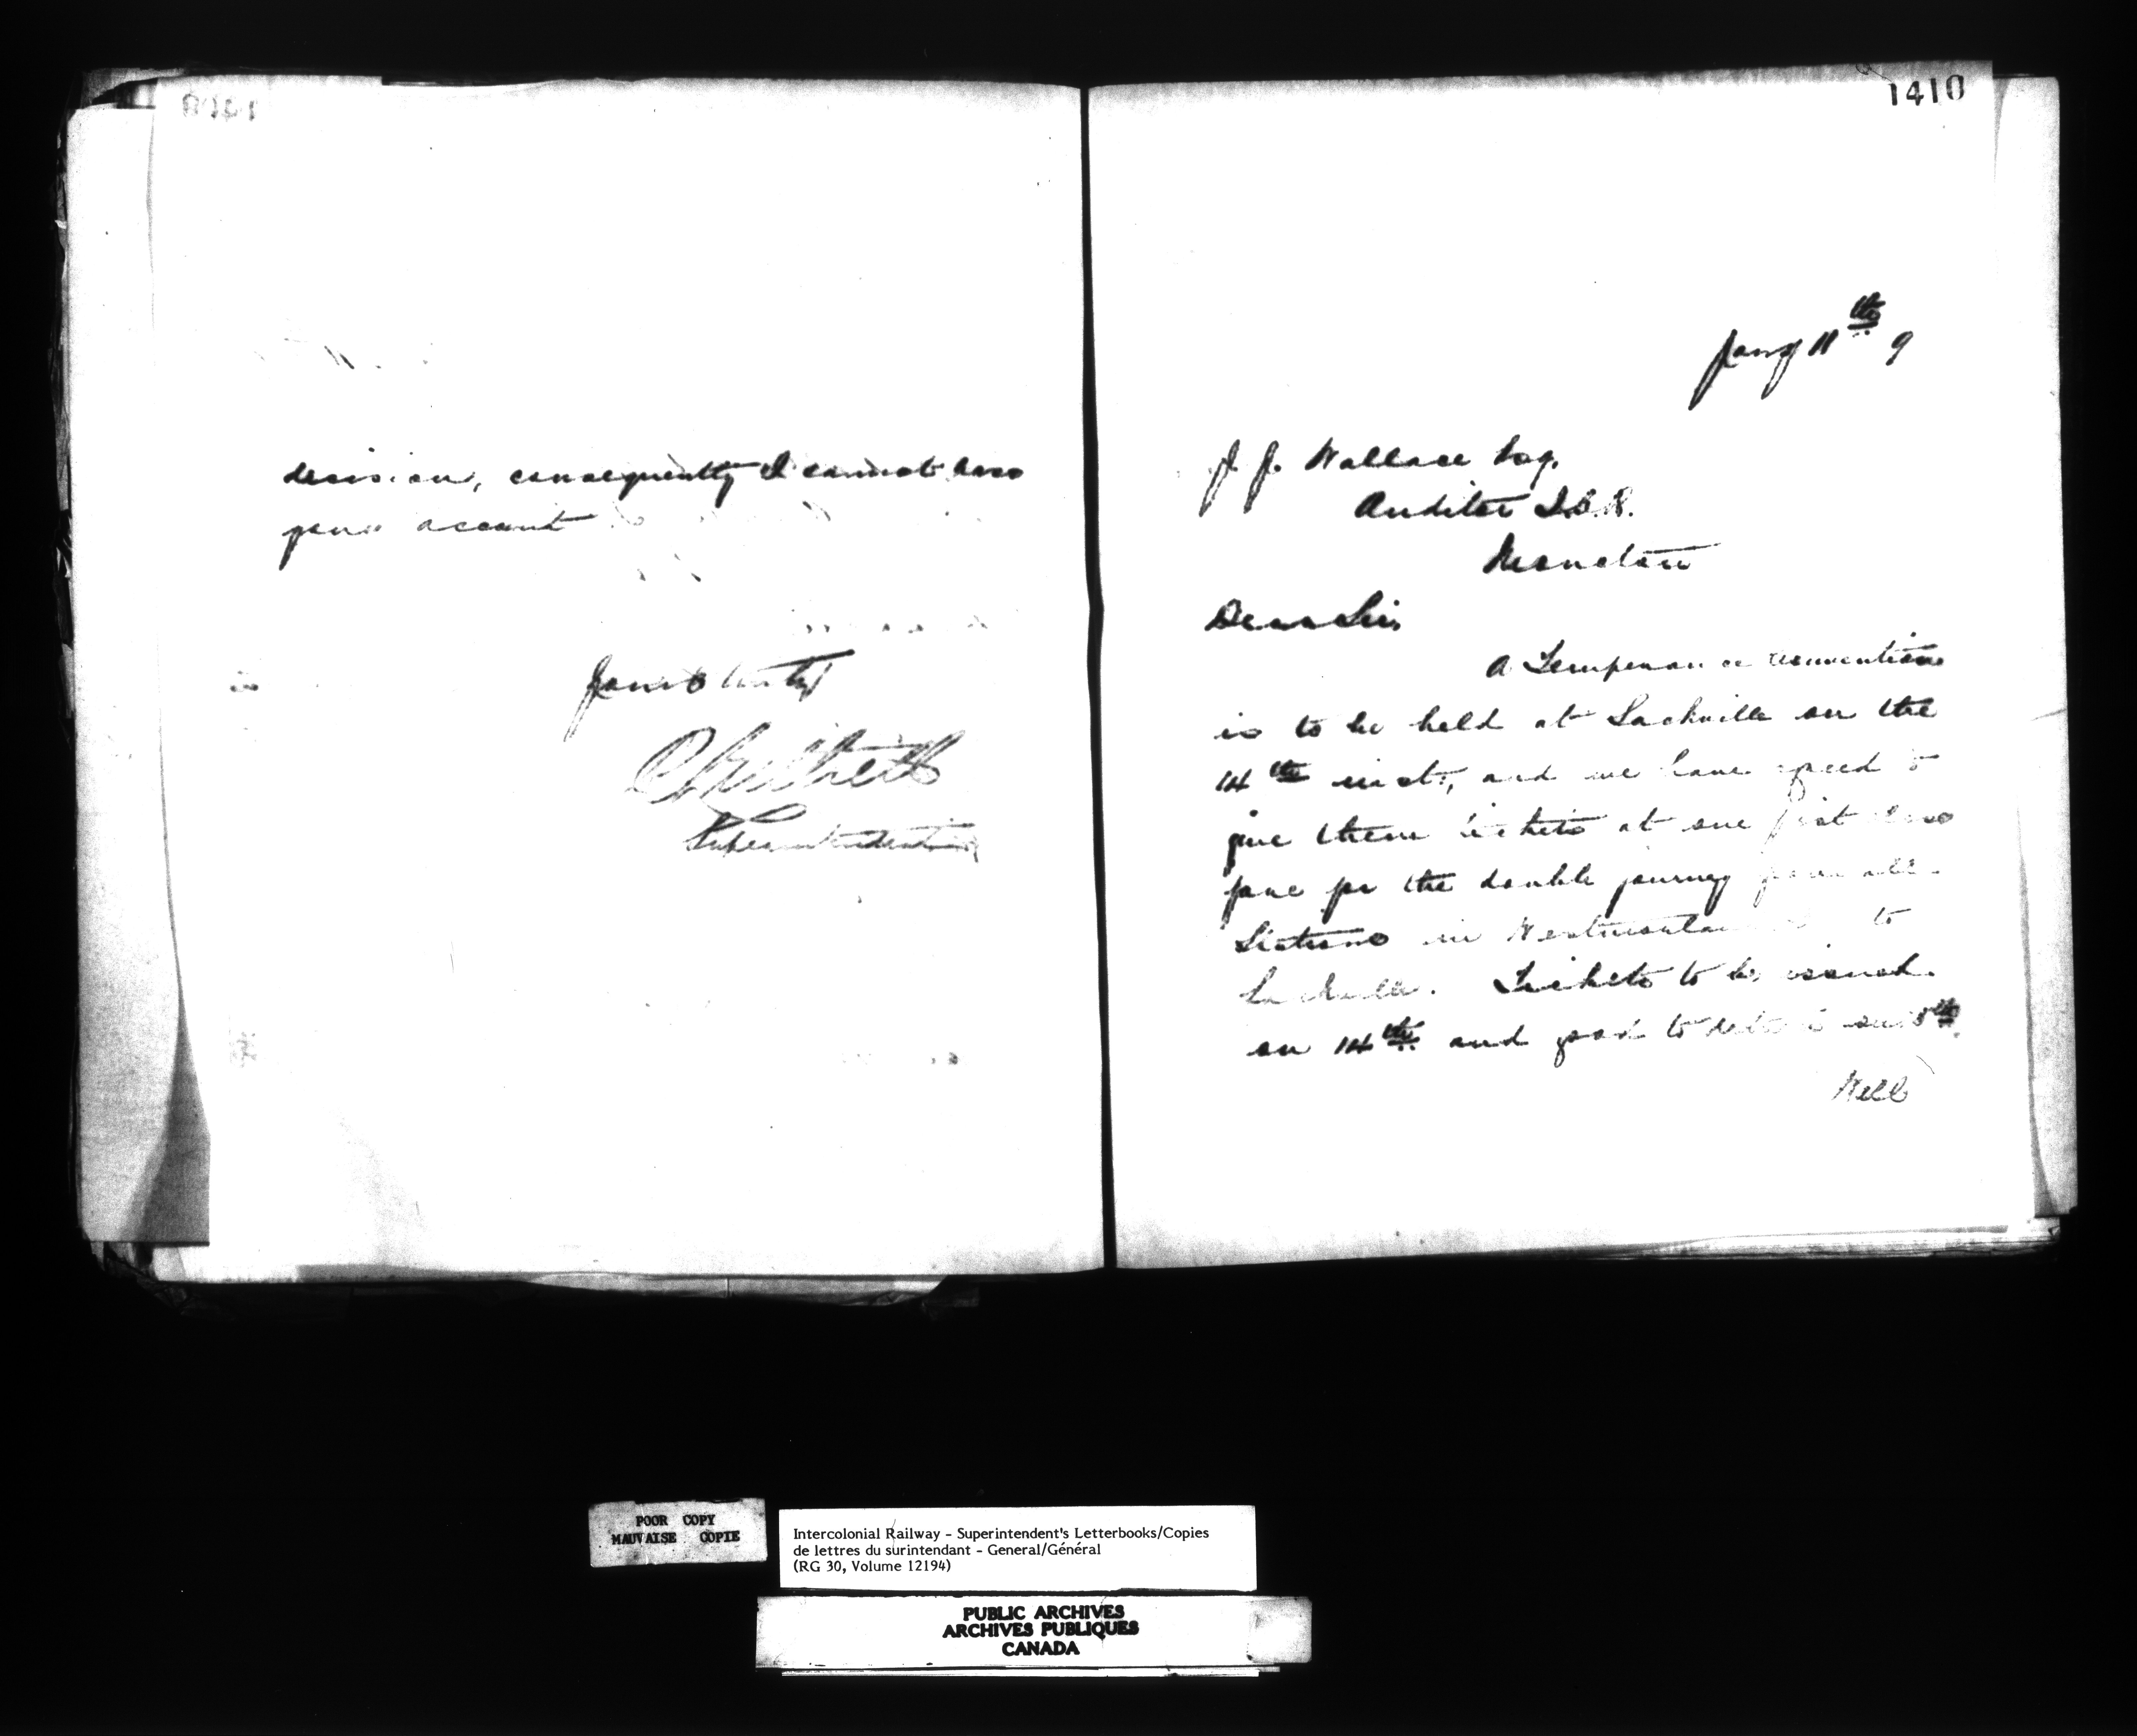 decision, consequently I cannot pass
your account
Yours truly
Superintendent
1410
Jany 11th 9
J. J. Wallace Esq.
Auditor I.C.R.
Moncton
Dear Sir
A Temperance convention
is to be held at Sackville on the
14th inst, and we have agreed to
give them tickets at one first class
fare for the double journey from all
Stations in Westmorland to
Sackville. Tickets to be issued
on 14th and good to return on 15th.
Will
POOR COPY
MAUVAISE COPIE
Intercolonial Railway - Superintendent's Letterbooks/Copies
de lettres du surintendant - General/Général
(RG 30, Volume 12194)
PUBLIC ARCHIVES
ARCHIVES PUBLIQUES
CANADA